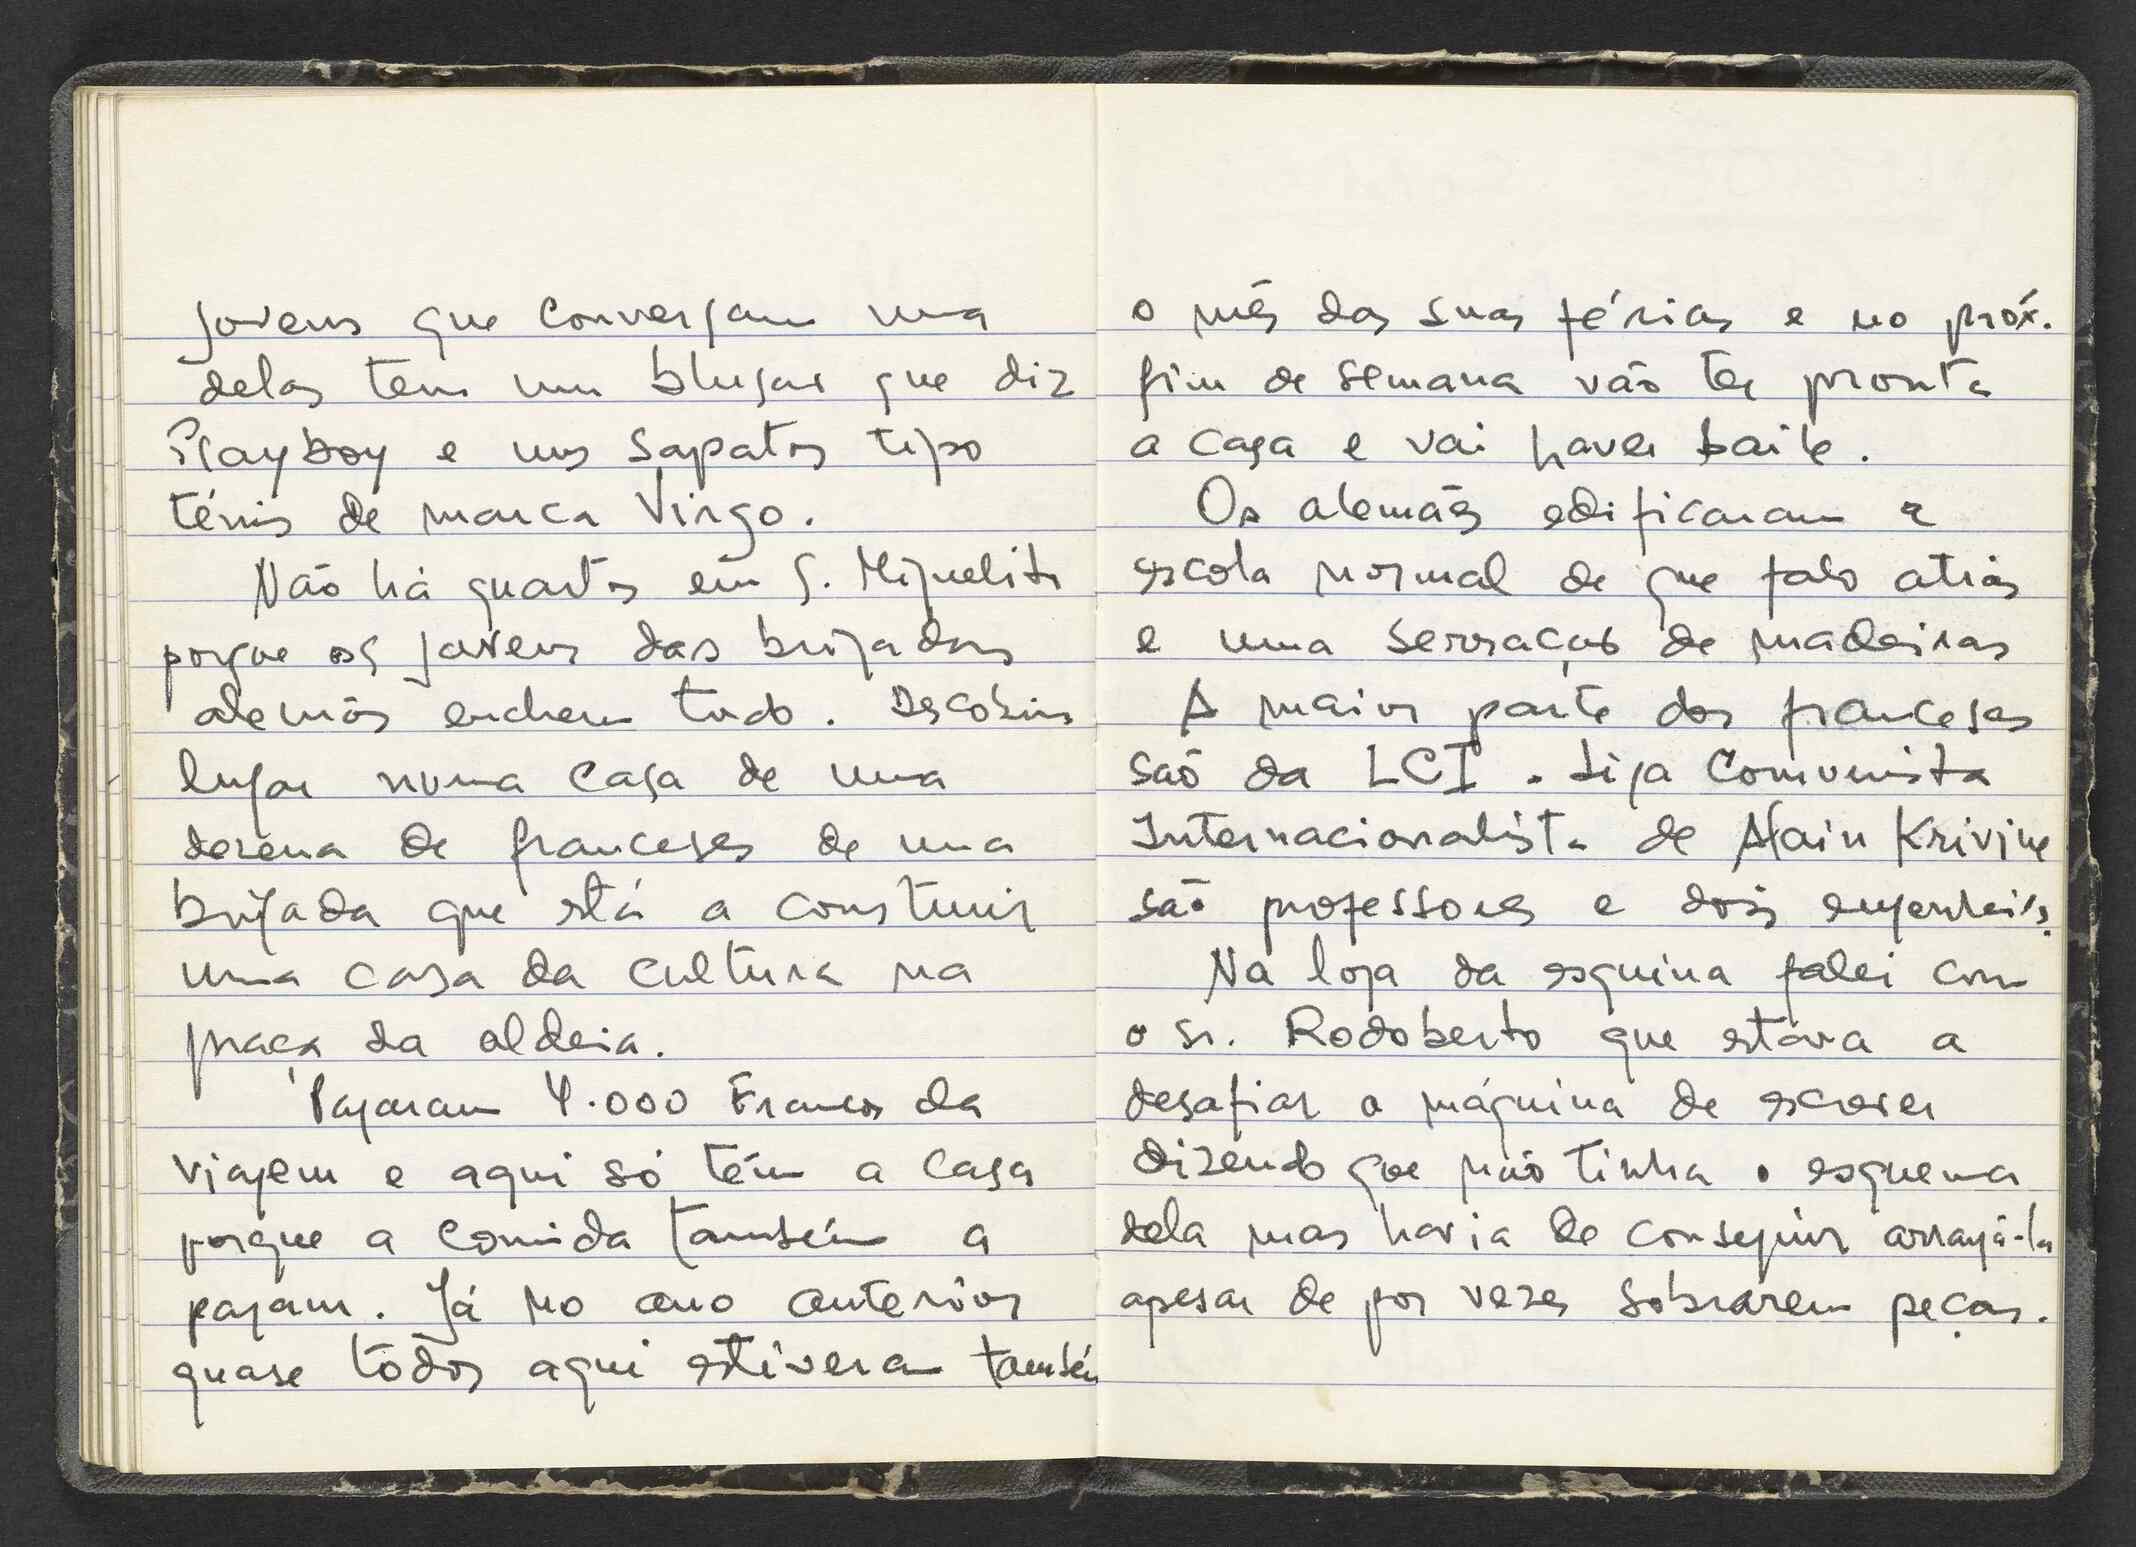 jovens que conversam uma
delas tem um blusar que diz
Playboy e uns sapatos tipo
ténis de marca Virgo.
Não há quartos em S. Miguelito
porque os jovens das brigadas
alemãs enchem tudo. Descobrimos
lugar numa casa de uma
dezena de franceses de uma
brigada que está a construir
uma casa da cultura na
praça da aldeia.
Pagaram 4.000 Francos da
viagem e aqui só têm a casa
porque a comida também a
pagam. Já no ano anterior
quase todos aqui estiveram também
o mês das suas férias e no próx.
fim de semana vão ter pronta
a casa e vai haver baile.
Os alemães edificaram a
escola normal de que falo atrás
e uma serração de madeiras
A maior parte dos franceses
são da LCI. Liga Comunista
Internacionalista de Alain Krivine
são professores e dois engenheiros.
Na loja da esquina falei com
o sr. Rodoberto que estava a
desafiar a máquina de escrever
dizendo que não tinha o esquema
dela mas havia de conseguir arranjá-la
apesar de por vezes sobrarem peças.